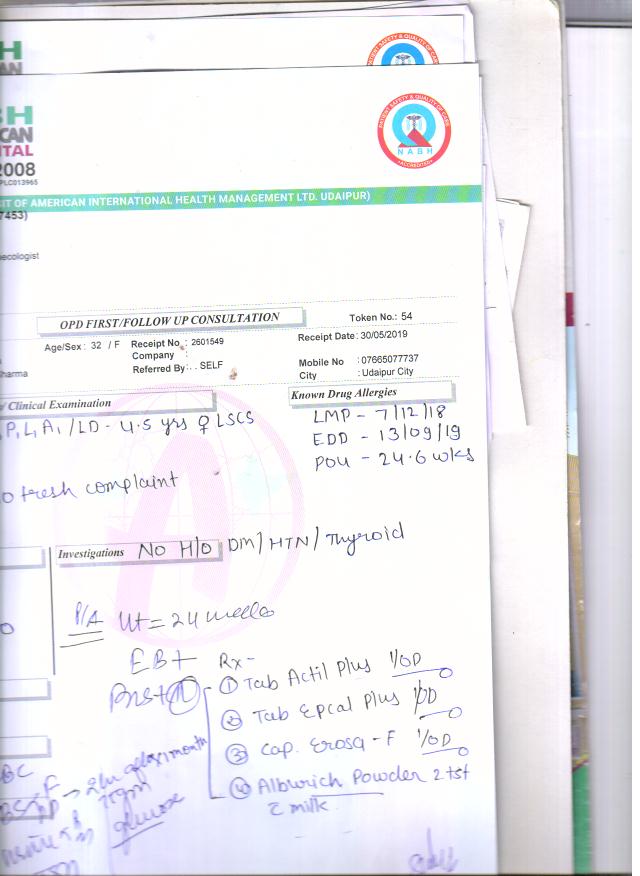 H
AN
PATIENT SAFETY & QUALITY OF CARE
BH
ICAN
ITAL
PATIENT SAFETY & QUALITY OF CARE
NABH
ACCREDITED
2008
PLC013965
IT OF AMERICAN INTERNATIONAL HEALTH MANAGEMENT LTD. UDAIPUR)
7453)
ecologist
OPD FIRST/FOLLOW UP CONSULTATION
Token No.: 54
Age/Sex: 32 / F Receipt No : 2601549
Receipt Date: 30/05/2019
Company :
Mobile No : 07665077737
harma
Referred By: . . SELF
City : Udaipur City
/ Clinical Examination
Known Drug Allergies
P, L, A1 / LD - 4.5 yrs ♀ LSCS
LMP - 7/12/18
EDD - 13/09/19
POG - 24.6 wks
o fresh complaint
Investigations No H/O DM/HTN/Thyroid
P/A Ut = 24 weeks
EBT Rx-
① Tab Actil Plus 1/OD
② Tab Epcal Plus 1/OD
③ Cap. Erosa-F 1/OD
④ Alburich Powder 2 tsf
c milk
BC
F → 2hr after 75gm
glucose